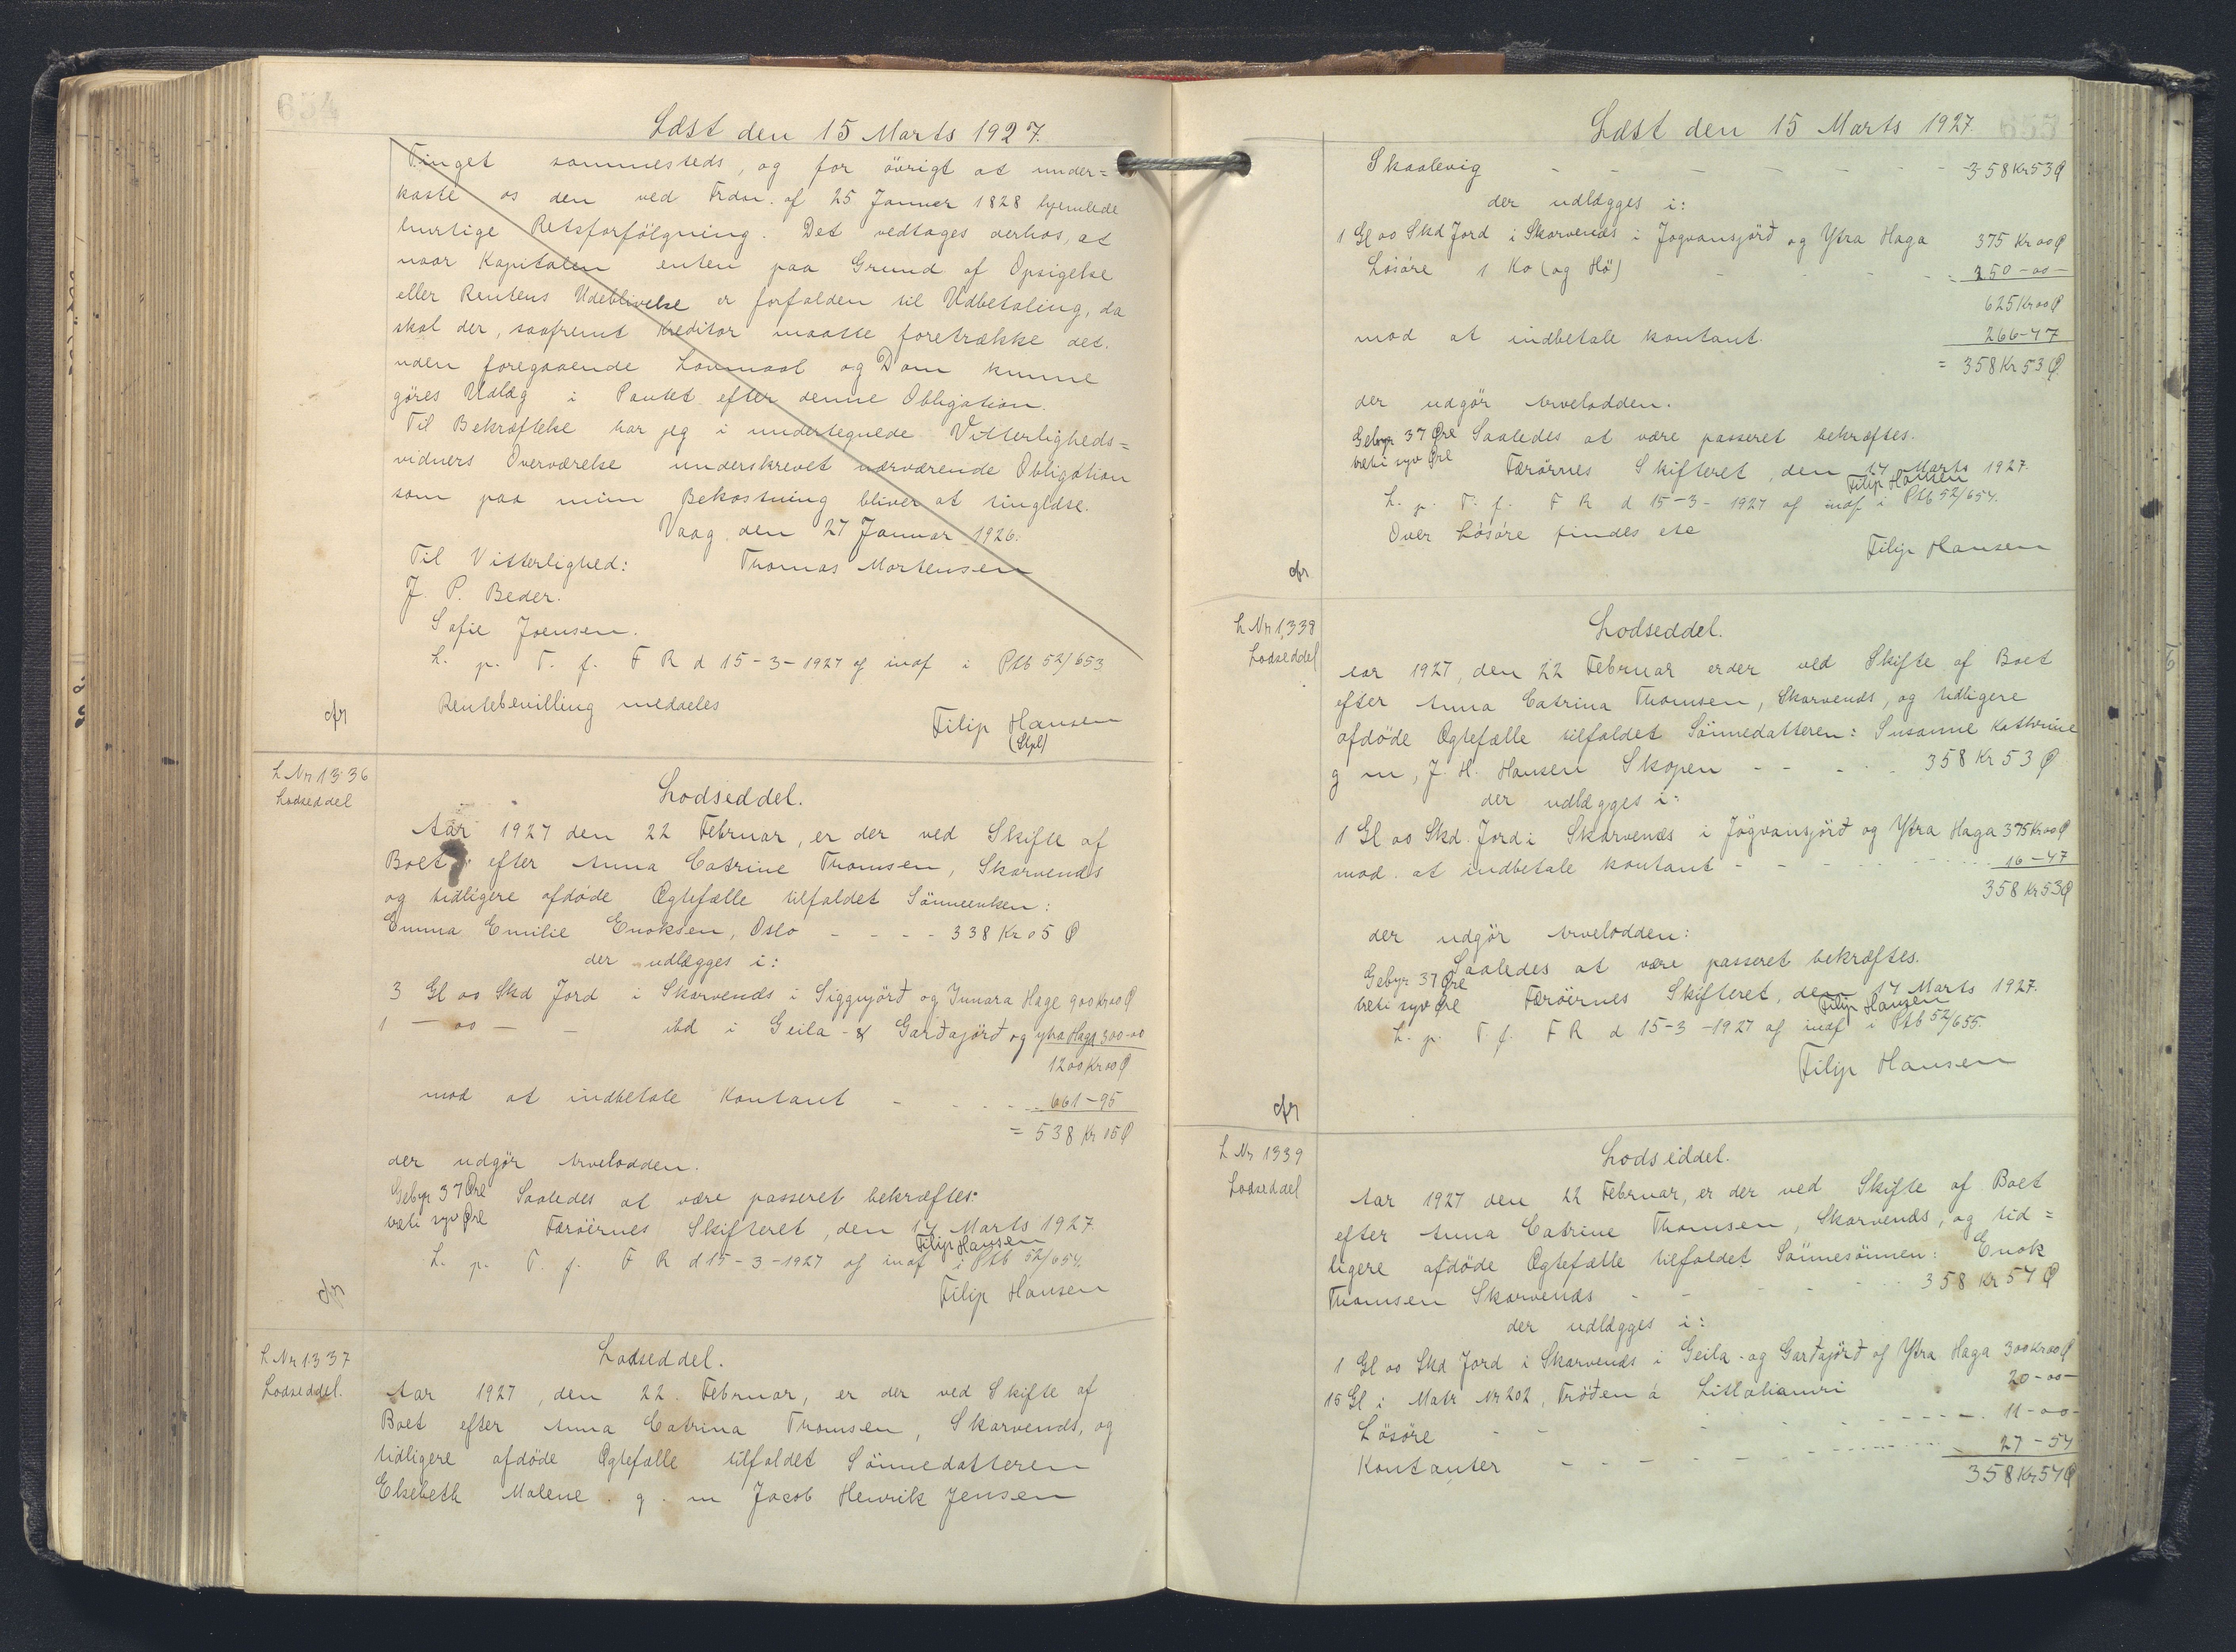 654
Læst den 15 Marts 1927.
Tinget sammesteds, og for övrigt at under=
kaste os den ved Frdn. af 25 Januar 1828 hjemlede
hurtige Retsforfölgning. Det vedtages derhos, at
naar Kapitalen enten paa Grund af Opsigelse
eller Rentens Udeblivelse er forfalden til Udbetaling, da
skal der, saafremt Kreditor maatte foretrække det.
uden foregaaende Lovmaal og Dom kunne
göres Udlæg i Pantet efter denne Obligation.
Til Bekræftelse har jeg i undertegnede Vitterligheds=
vidners Overværelse underskrevet nærværende Obligation
som paa min Bekostning bliver at tinglæse.
Vaag den 27 Januar 1926.
Til Vitterlighed: Thomas Mortensen
J. P. Beder.
Sofie Joensen.
L. p. T. f. F R d 15-3-1927 og indf i Ptb 52/653
Rentebevilling meddeles
cfr
Filip Hansen
(Stpl)
L Nr 1336
Lodseddel
Lodseddel.
Aar 1927 den 22 Februar, er der ved Skifte af
Boet efter Anna Catrine Thomsen, Skarvenæs
og tidligere afdöde Ægtefælle tilfaldet Sönneenken:
Emma Emilie Enoksen, Oslo - - - - 338 Kr 05 Ø
der udlægges i:
3 Gl 00 Skd Jord i Skarvenæs i Siggujörð og Innara Hage 900 Kr 00 Ø
1 - 00 - - ibd i Geila - & Garðajörð og ytra Haga 300-00
1200 Kr 00 Ø
mod at indbetale Kontant - - - - 661-95
= 538 Kr 05 Ø
der udgör Arvelodden.
Gebyr 37 Øre Saaledes at være passeret bekræftes.
treti syv Øre Færöernes Skifteret, den 14 Marts 1927.
Filip Hansen
L. p. T. f. F R d 15-3-1927 og indf i Ptb 52/654.
cfr
Filip Hansen
L Nr 1337
Lodseddel.
Lodseddel.
Aar 1927, den 22. Februar, er der ved Skifte af
Boet efter Anna Catrina Thomsen, Skarvenæs, og
tidligere afdöde Ægtefælle tilfaldet Sönnedatteren
Elsebeth Malene g. m Jacob Henrik Jensen
655
Læst den 15 Marts 1927.
Skaalevig - - - - - - - 358 Kr 53 Ø
der udlægges i:
1 Gl 00 Skd Jord i Skarvenæs i Jogvansjörð og Ytra Haga 375 Kr 00 Ø
Lösöre 1 Ko (og Hö) - - - = 250-00-
625 Kr 00 Ø
mod at indbetale kontant. 266-47
= 358 Kr 53 Ø.
der udgör Arvelodden.
Gebyr 37 Øre Saaledes at være passeret bekræftes.
treti syv Øre Færöernes Skifteret, den 14 Marts 1927.
Filip Hansen
L. p. T. f. F R d 15-3-1927 og indf i Ptb 52/654.
Over Lösöre findes etc
Filip Hansen
cfr
L Nr 1338
Lodseddel
Lodseddel.
Aar 1927, den 22 Februar er der ved Skifte af Boet
efter Anna Catrina Thomsen, Skarvenæs, og tidligere
afdöde Ægtefælle tilfaldet Sönnedatteren: Susanne Kathrine
g m, J. H. Hansen Skopen - - - - 358 Kr 53 Ø
der udlægges i:
1 Gl 00 Skd. Jord i Skarvenæs i Jögvansjörð og Ytra Haga 375 Kr 00 Ø
mod at indbetale kontant - - - - - - 16-47
358 Kr 53 Ø
der udgör Arvelodden:
Saaledes at være passeret bekræftes.
Gebyr 37 Øre
treti syv Øre Færöernes Skifteret, den 14 Marts 1927.
Filip Hansen
L. p. T. f. F R d 15-3-1927 og indf i Ptb 52/655.
Filip Hansen
cfr
L Nr 1339
Lodseddel
Lodseddel.
Aar 1927 den 22 Februar, er der ved Skifte af Boet
efter Anna Catrine Thomsen, Skarvenæs, og tid=
ligere afdöde Ægtefælle tilfaldet Sönnesönnen: Enok
Thomsen Skarvenæs - - - - 358 Kr 54 Ø
der udlægges i:
1 Gl 00 Skd Jord i Skarvenæs i Geila - og Garðajörð og Ytra Haga 300 Kr 00 Ø
15 Gl i Matr Nr 202, Tröðen á Litlaliamri 20-00-
Lösöre - - - - - 11-00-
Kontanter - - - - - 27-54
358 Kr 54 Ø